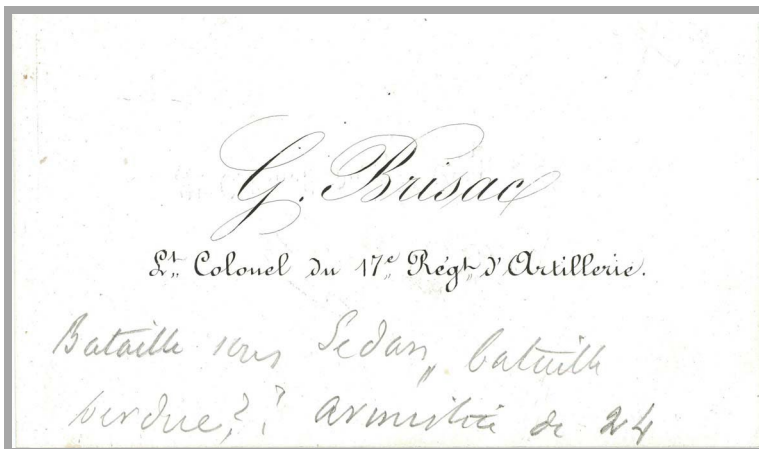 G. Brisac
Lt. Colonel du 17e Régt d'Artillerie.
Bataille sous Sedan, bataille
perdue?? armistice de 24